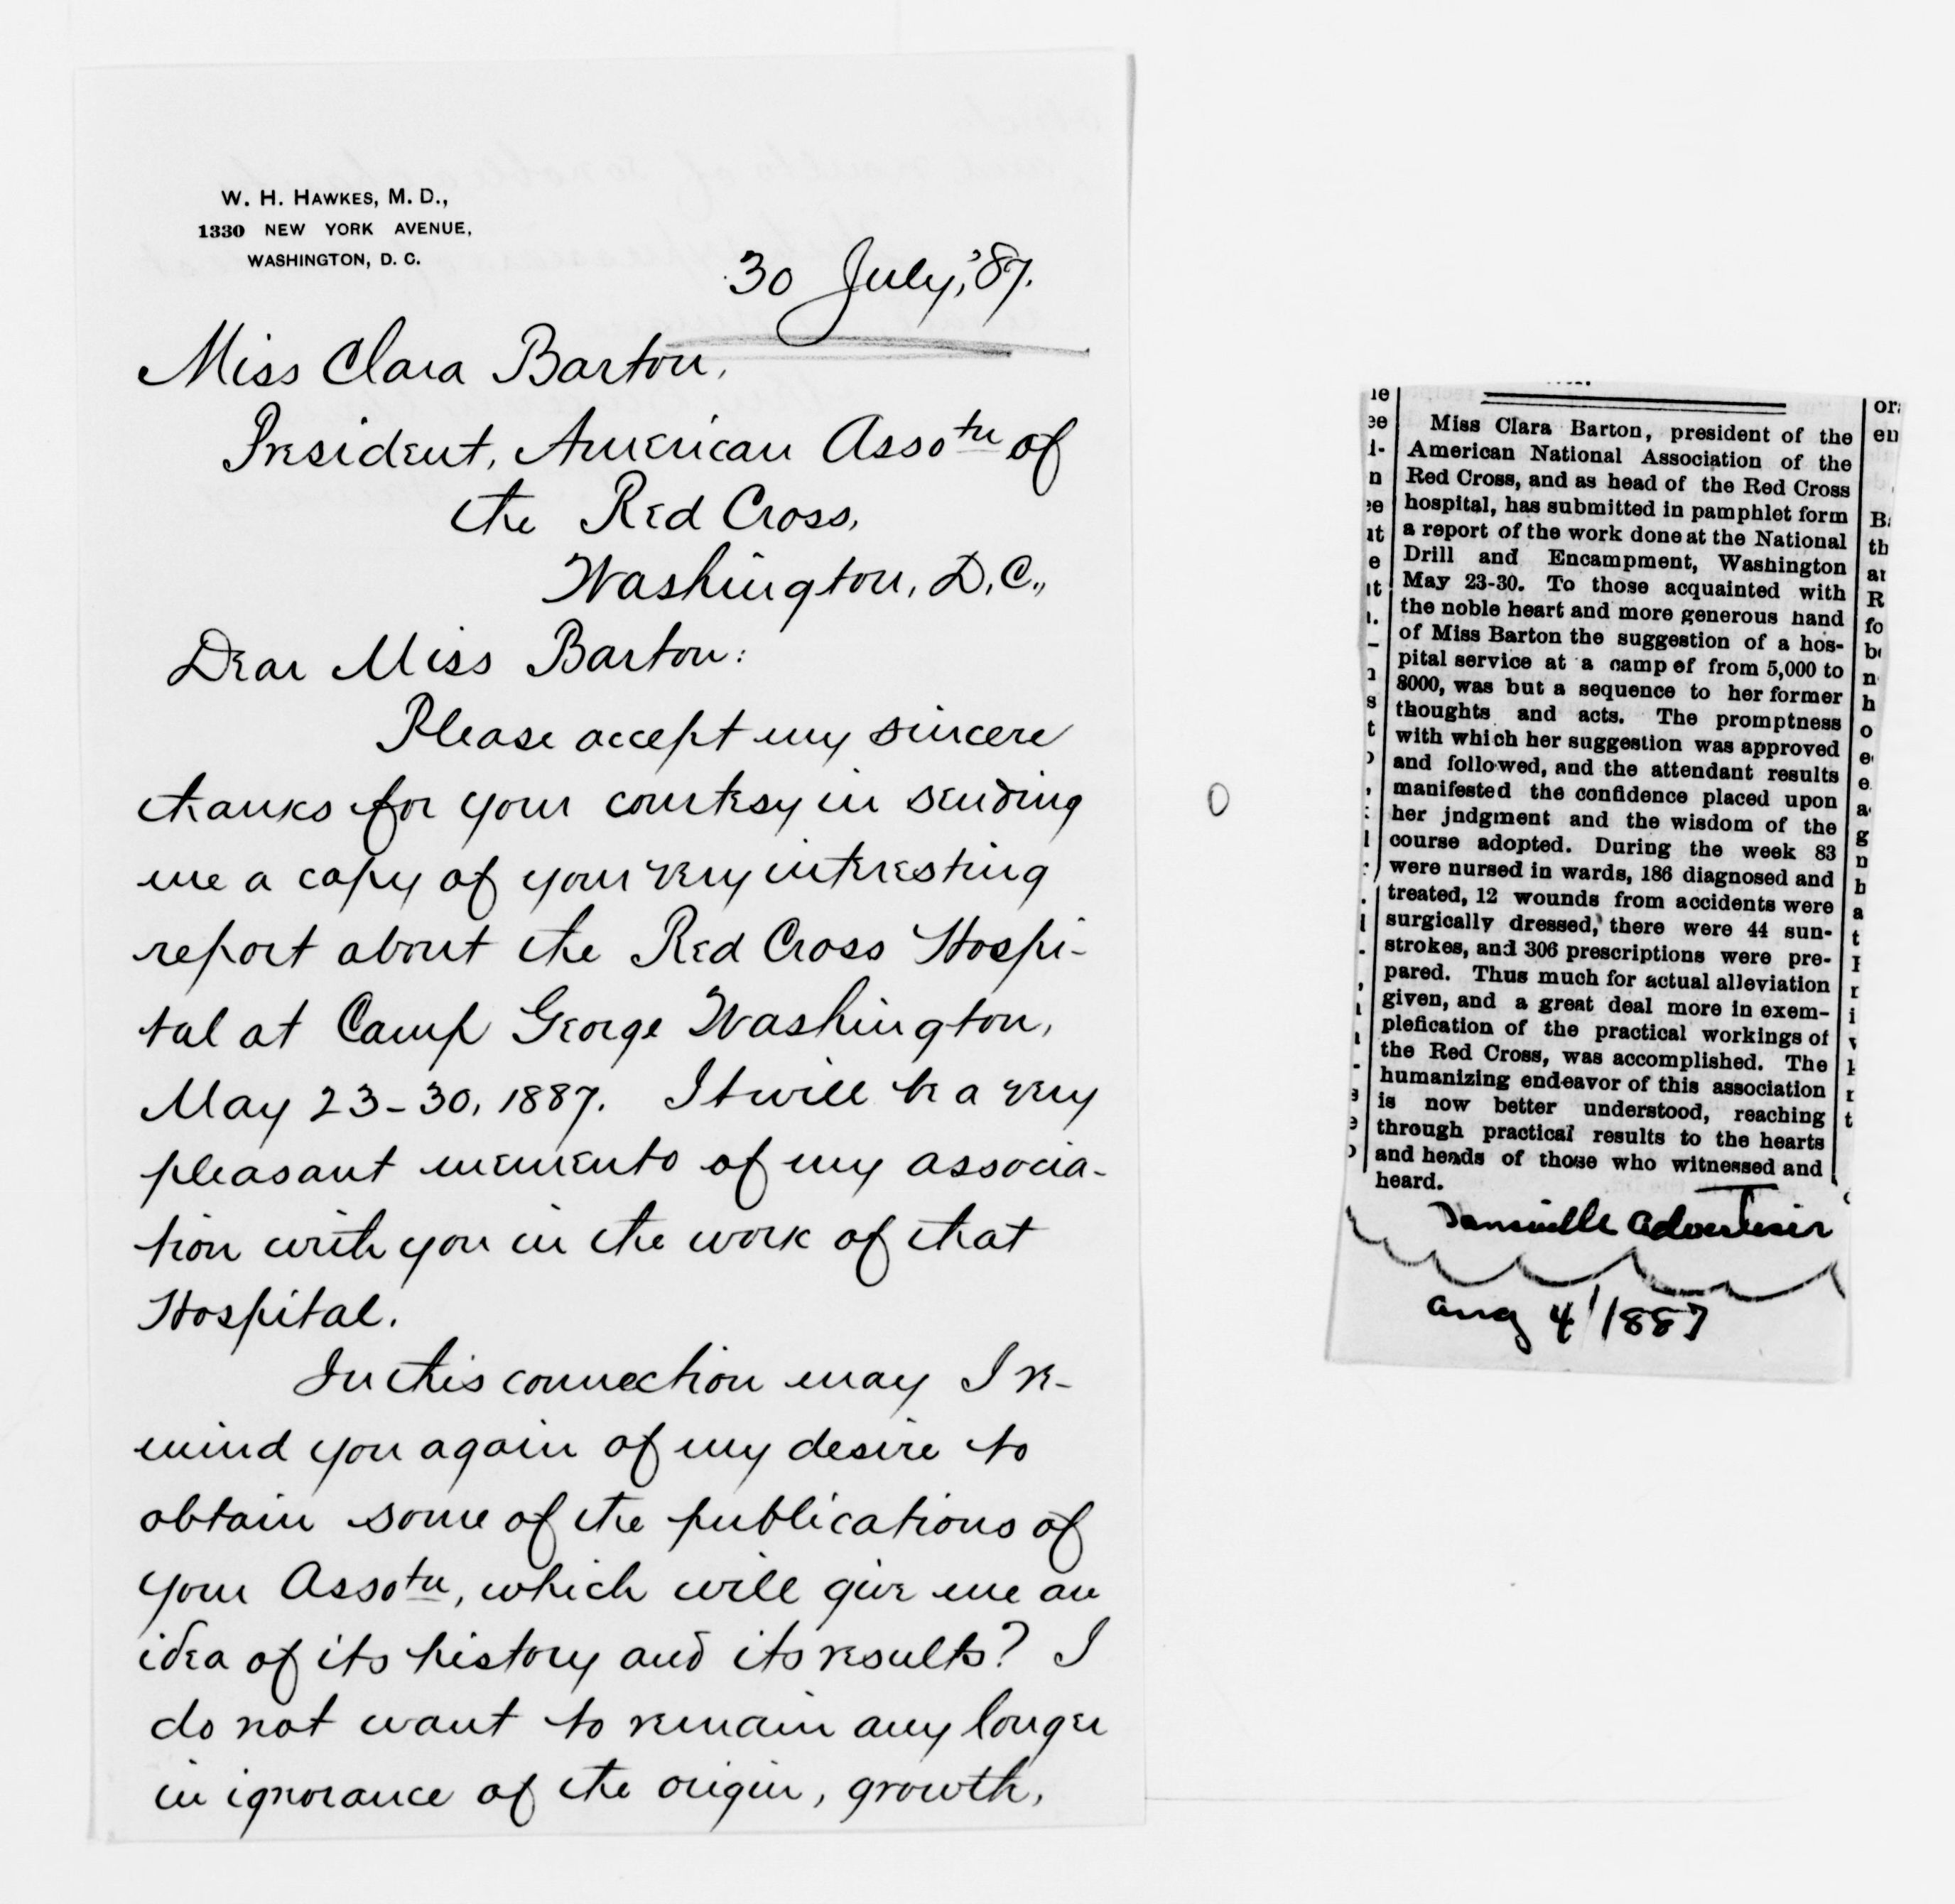 W. H. HAWKES, M. D.,
1330 NEW YORK AVENUE,
WASHINGTON, D. C.
30 July, '87.
Miss Clara Barton,
President, American Assotn of
the Red Cross,
Washington, D.C.,
Dear Miss Barton:
Please accept my sincere
thanks for your courtesy in sending
me a copy of your very interesting
report about the Red Cross Hospi-
tal at Camp George Washington,
May 23-30, 1887. It will be a very
pleasant memento of my associa-
tion with you in the work of that
Hospital.
In this connection may I re-
mind you again of my desire to
obtain some of the publications of
your Assotn, which will give me an
idea of its history and its results? I
do not want to remain any longer
in ignorance of the origin, growth,
Miss Clara Barton, president of the
American National Association of the
Red Cross, and as head of the Red Cross
hospital, has submitted in pamphlet form
a report of the work done at the National
Drill and Encampment, Washington
May 23-30. To those acquainted with
the noble heart and more generous hand
of Miss Barton the suggestion of a hos-
pital service at a camp of from 5,000 to
8000, was but a sequence to her former
thoughts and acts. The promptness
with which her suggestion was approved
and followed, and the attendant results
manifested the confidence placed upon
her jndgment and the wisdom of the
course adopted. During the week 83
were nursed in wards, 186 diagnosed and
treated, 12 wounds from accidents were
surgically dressed, there were 44 sun-
strokes, and 306 prescriptions were pre-
pared. Thus much for actual alleviation
given, and a great deal more in exem-
plefication of the practical workings of
the Red Cross, was accomplished. The
humanizing endeavor of this association
is now better understood, reaching
through practical results to the hearts
and heads of those who witnessed and
heard.
Dansville Advertiser
Aug 4 1887